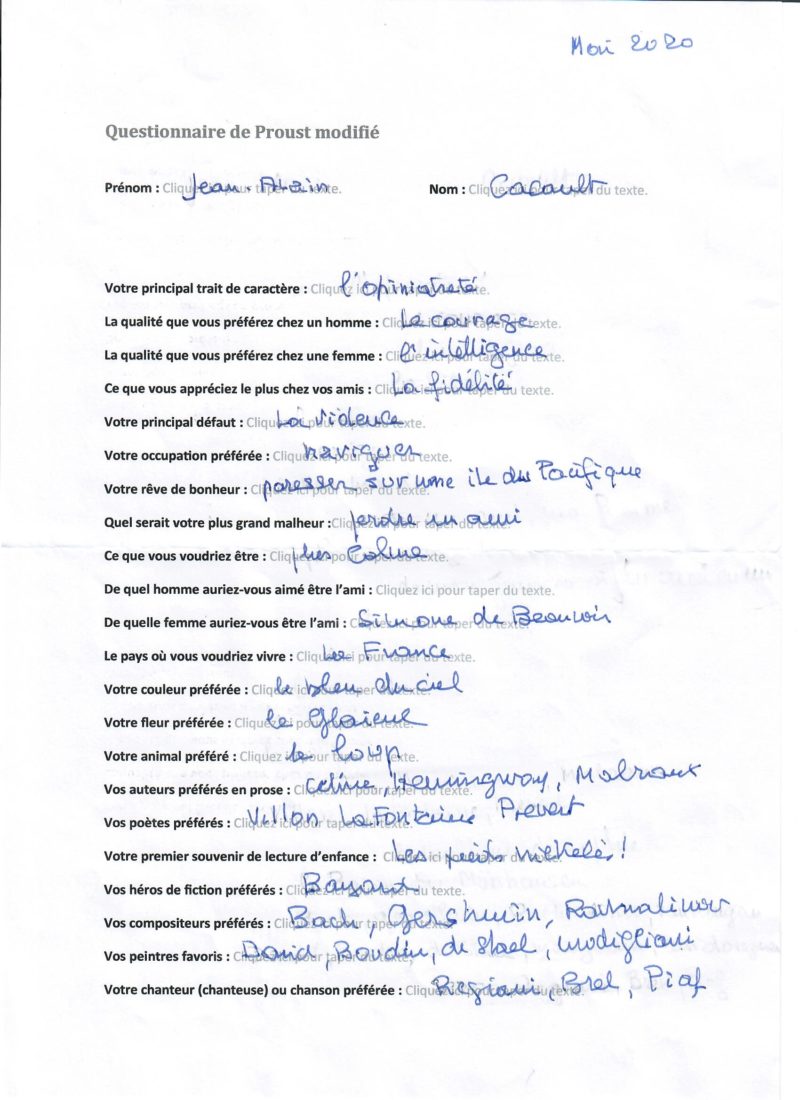 Mai 2020
Questionnaire de Proust modifié
Prénom : Cliquez ici pour taper du texte. Jean-Alain Nom : Cliquez ici pour taper du texte. Cacault
Votre principal trait de caractère : Cliquez ici pour taper du texte. l'opiniatreté
La qualité que vous préférez chez un homme : Cliquez ici pour taper du texte. Le courage
La qualité que vous préférez chez une femme : Cliquez ici pour taper du texte. l'intelligence
Ce que vous appréciez le plus chez vos amis : Cliquez ici pour taper du texte. La fidélité
Votre principal défaut : Cliquez ici pour taper du texte. La violence
Votre occupation préférée : Cliquez ici pour taper du texte. naviguer
Votre rêve de bonheur : Cliquez ici pour taper du texte. paresser sur une ile du Pacifique
Quel serait votre plus grand malheur : Cliquez ici pour taper du texte. perdre un ami
Ce que vous voudriez être : Cliquez ici pour taper du texte. plus calme
De quel homme auriez-vous aimé être l'ami : Cliquez ici pour taper du texte.
De quelle femme auriez-vous être l'ami : Cliquez ici pour taper du texte. Simone de Beauvoir
Le pays où vous voudriez vivre : Cliquez ici pour taper du texte. La France
Votre couleur préférée : Cliquez ici pour taper du texte. le bleu du ciel
Votre fleur préférée : Cliquez ici pour taper du texte. le glaieul
Votre animal préféré : Cliquez ici pour taper du texte. le loup
Vos auteurs préférés en prose : Cliquez ici pour taper du texte. Celine, Hemingway, Malraux
Vos poètes préférés : Cliquez ici pour taper du texte. Villon La Fontaine Prevert
Votre premier souvenir de lecture d'enfance : Cliquez ici pour taper du texte. Les pieds nickelés !
Vos héros de fiction préférés : Cliquez ici pour taper du texte.
Vos compositeurs préférés : Cliquez ici pour taper du texte. Bach, Gershwin,
Vos peintres favoris : Cliquez ici pour taper du texte. David, Boudin, de Stael, modigliani
Votre chanteur (chanteuse) ou chanson préférée : Cliquez ici pour taper du texte. Regiani, Brel, Piaf